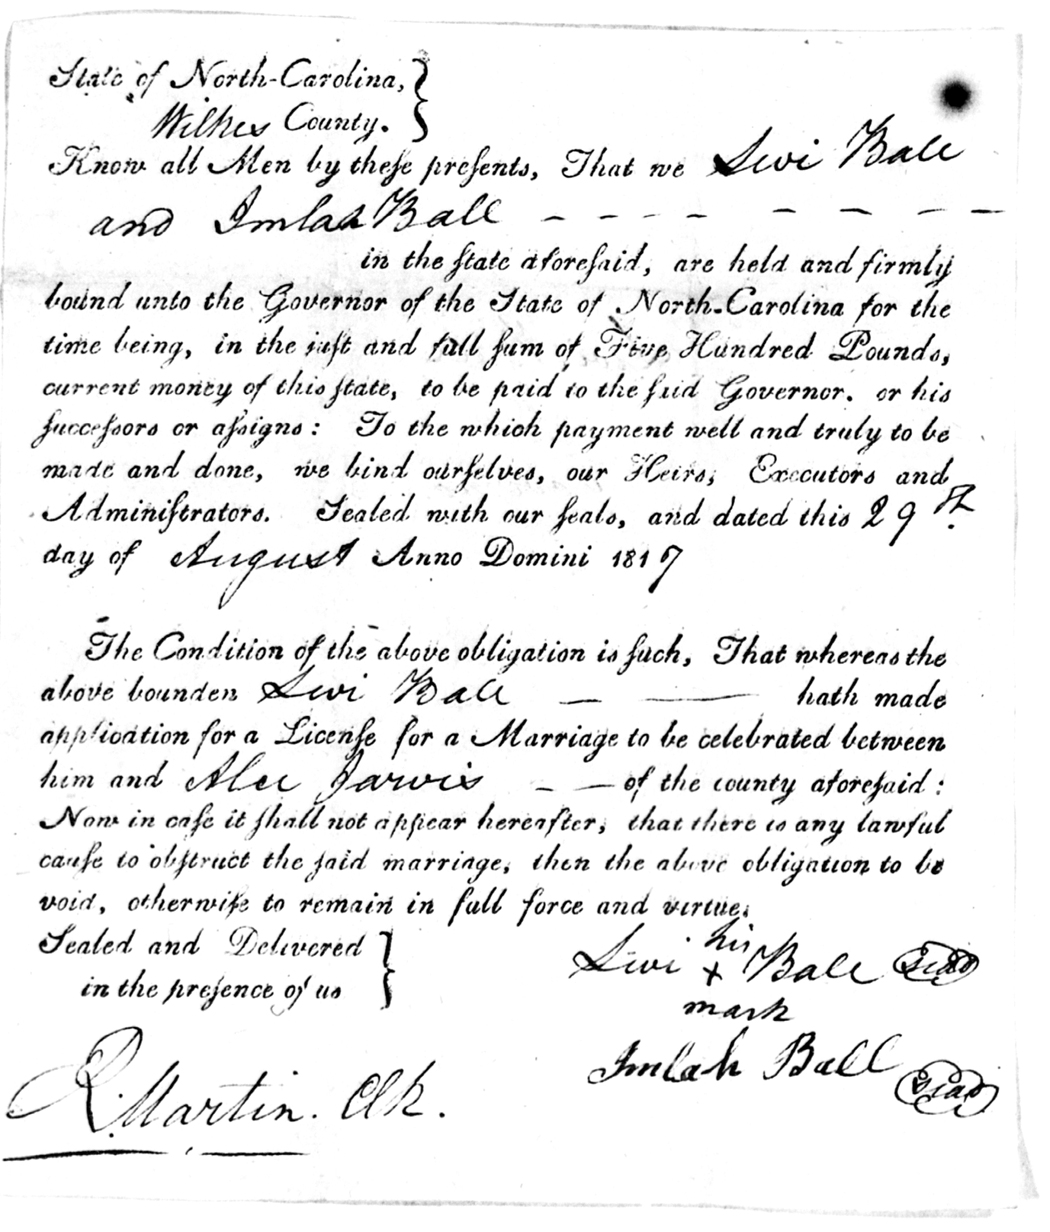 State of North-Carolina,
Wilkes County.
Know all Men by theſe preſents, That we Levi Ball
and Imlah Ball – – – – – – – –
in the ſtate aforeſaid, are held and firmly
bound unto the Governor of the State of North-Carolina for the
time being, in the juſt and full ſum of Five Hundred Pounds,
current money of this ſtate, to be paid to the ſaid Governor. or his
ſucceſſors or aſſigns: To the which payment well and truly to be
made and done, we bind ourſelves, our Heirs, Executors and
Adminiſtrators. Sealed with our ſeals, and dated this 29th.
day of August Anno Domini 1817
The Condition of the above obligation is ſuch, That whereas the
above bounden Levi Ball – — hath made
application for a Licenſe for a Marriage to be celebrated between
him and Alee Jarvis – — of the county aforeſaid:
Now in caſe it ſhall not appear hereafter, that there is any lawful
cauſe to obſtruct the ſaid marriage, then the above obligation to be
void, otherwiſe to remain in full force and virtue.
Sealed and Delivered
in the preſence of us
his
Levi + Ball Seal
mark
Imlah Ball Seal
R. Martin. Clk.